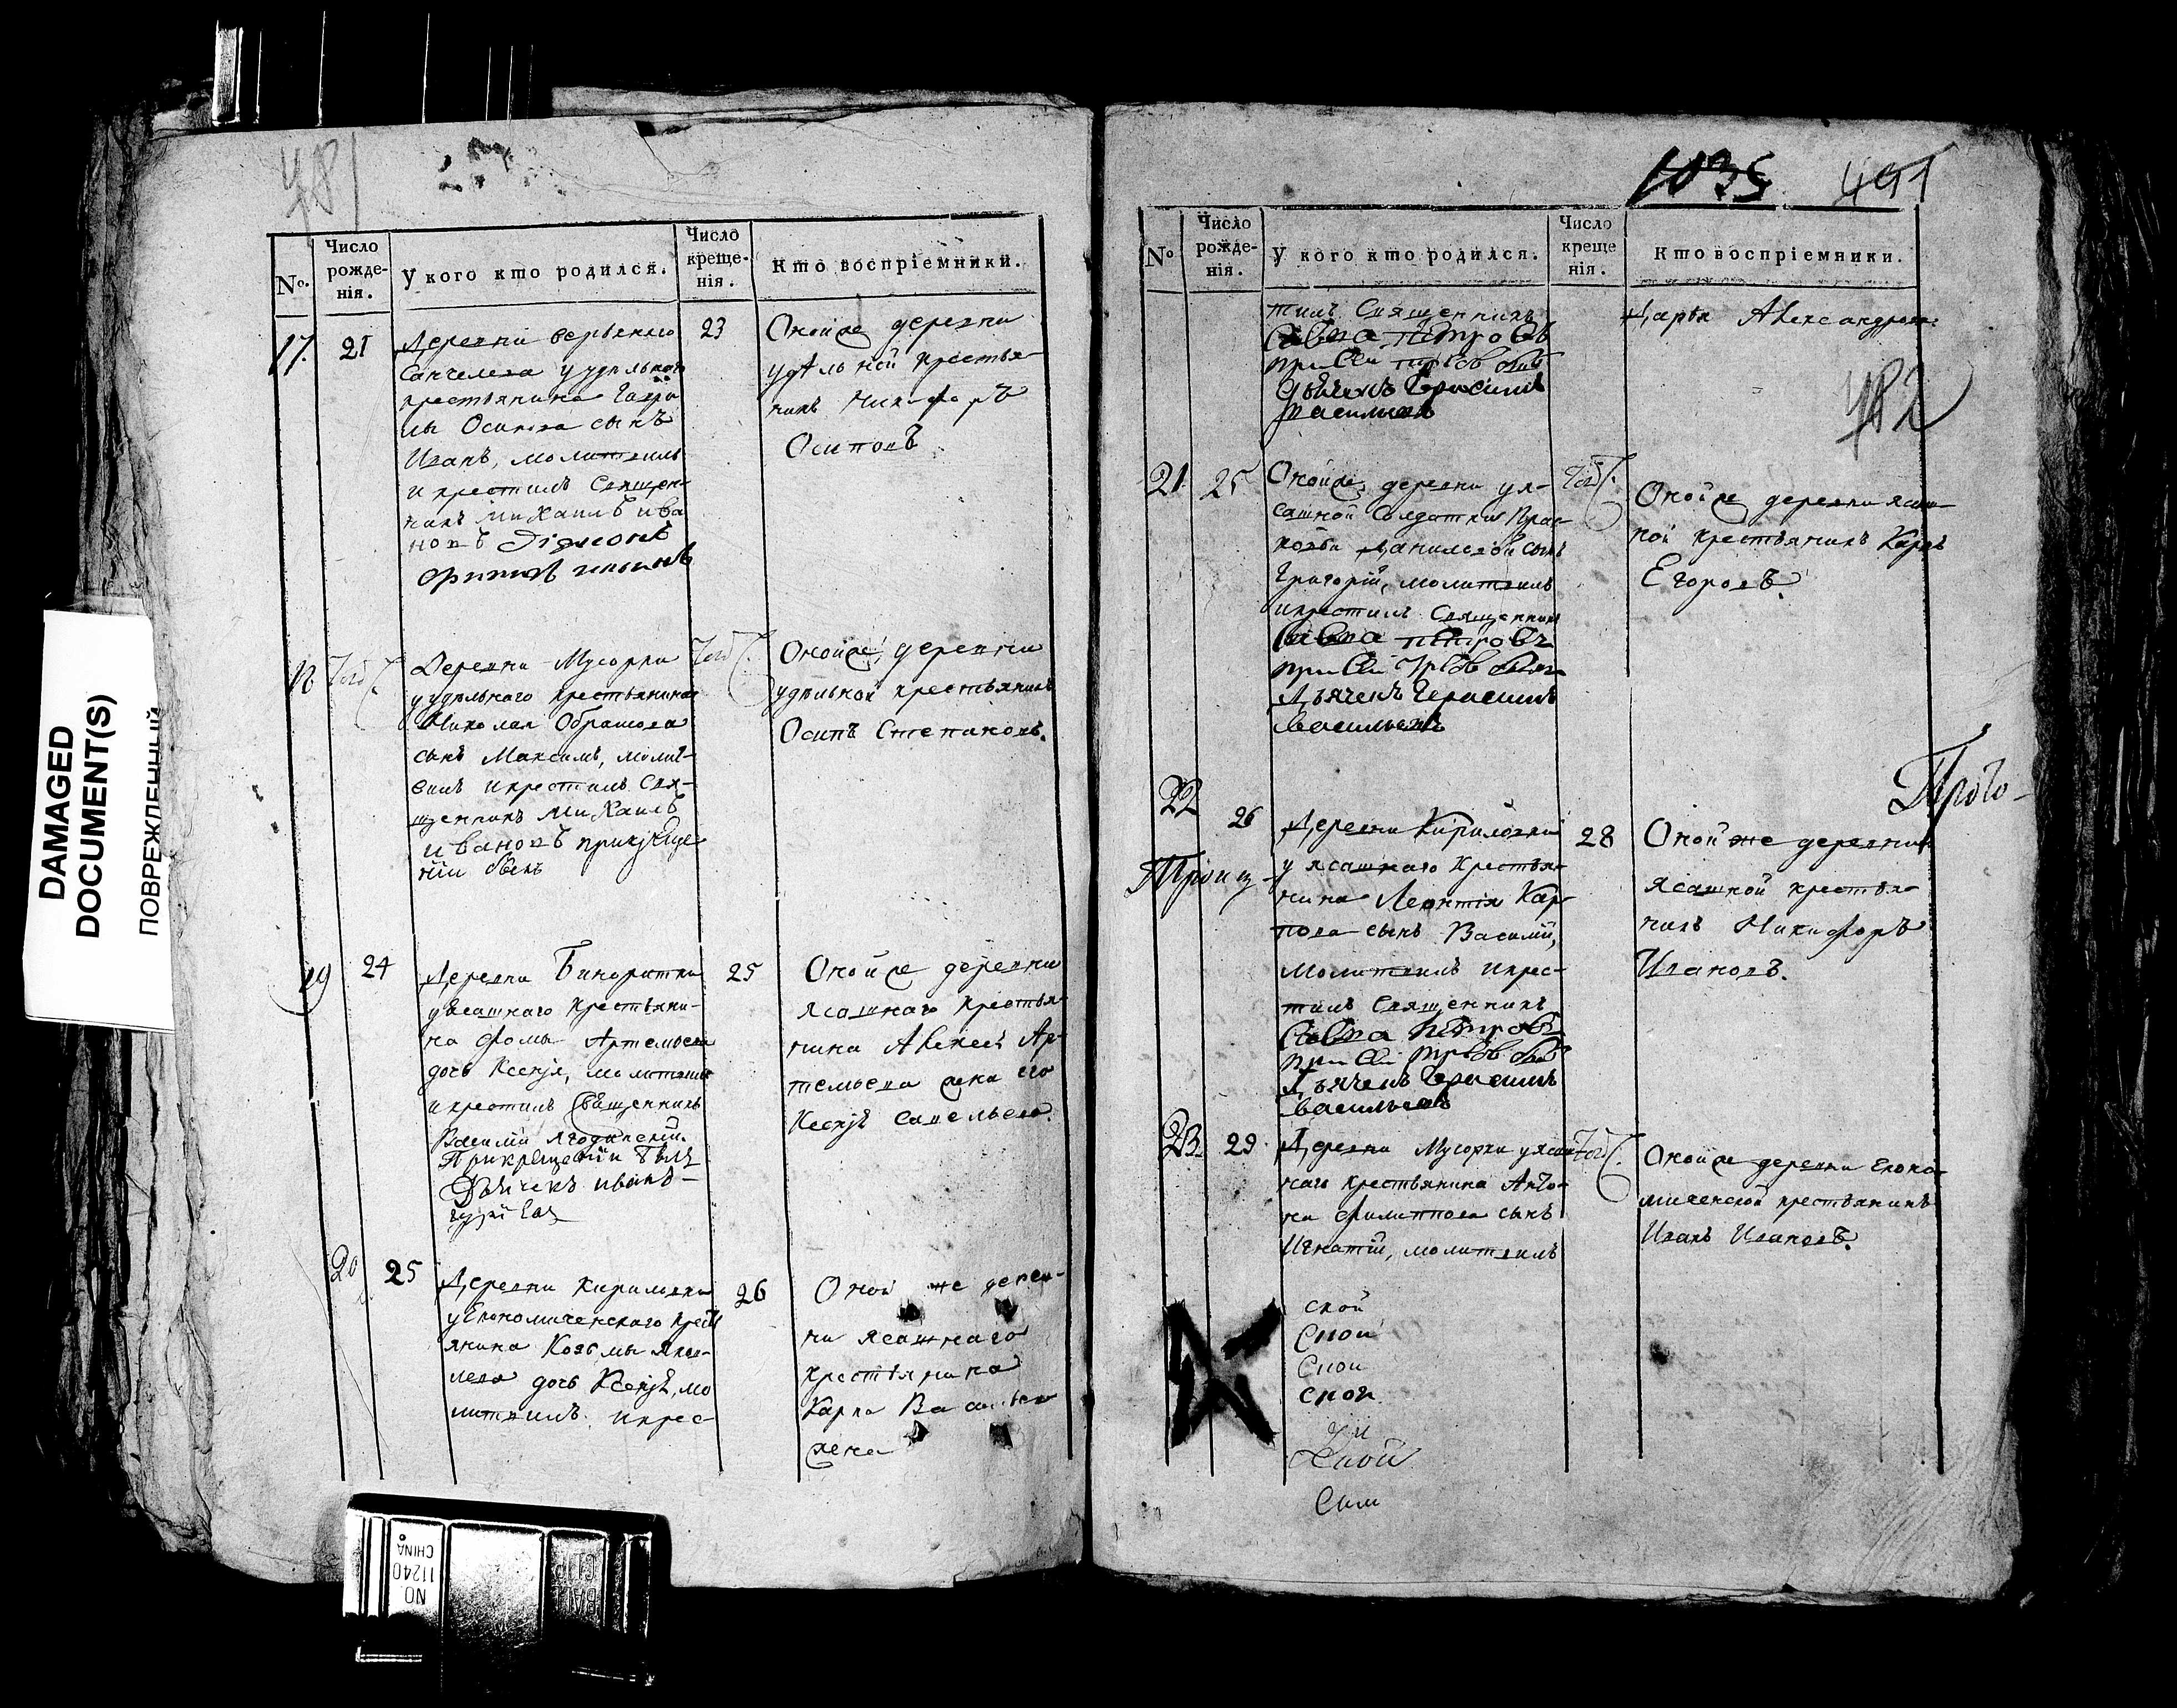 481
DAMAGED
DOCUMENT(S)
ПОВРЕЖДЕННЫЙ
№.
Число рожде-нія.
У кого кто родился.
Число креще-нія.
Кто воспріемники.
17.
21
Деревни верьхняго
Санчелеева у удѣльнаго
крестьянина Гаври
лы Осипова сынъ
Иванъ, молитвилъ
и крестилъ Священ-
никъ Михаилъ ива
новъ Діяконъ
23
Оной же деревни
удѣльной крестья-
нинъ Никифоръ
Осиповъ
18
Деревни Мусорки
у удѣльнаго крестьянина
Николая
сынъ Максимъ, молит-
вилъ и крестилъ Свя-
щенникъ Михаилъ
ивановъ прикреще-
ніи былъ
Оной же деревни
удѣльной крестьянинъ
Осипъ Степановъ.
19
24
Деревни
у ясашнаго крестьяни-
на Фомы Артемьева
дочь Ксенія, молитвилъ
и крестилъ Священникъ
Василий Ягодинский.
При крещеніи былъ
Дьячекъ иванъ
25
Оной же деревни
ясашнаго крестья-
нина Алексея Ар-
темьева жена его
Ксенія Савельева.
20
25
Деревни Кириловки
у Економическаго крест
янина Козьмы Яков-
лева дочь Ксенія, мо
литвилъ и крес-
26
Оной же дерев-
ни ясашнаго
крестьянина
Карпа Васильева
жена
1035
491
482
№
Число рожде-нія.
У кого кто родился.
Число креще нія.
Кто воспріемники.
тилъ Священникъ
Савва Петровъ
при Сей требѣ былъ
Дьячекъ Герасимъ
Васильевъ
Дарья Александрова.
21
25
Оной же деревни у я-
сашной Солдатки Прас-
ковьи Даниловой сынъ
Григорій, молитвилъ
и крестилъ Священникъ
Савва петровъ
при Сей требѣ былъ
Дьячекъ Герасимъ
Васильевъ
Оной же деревни ясаш-
ной крестьянинъ Карпъ
Егоровъ.
22
26
Деревни Кириловки
у ясашнаго крестья-
нина Леонтія Кар-
пова сынъ Василий,
Молитвилъ и крес-
тилъ Священникъ
Савва Петровъ
при Сей требѣ былъ
Дьячекъ Герасимъ
Васильевъ
28
Оной же деревни
ясашной крестья-
нинъ Никифоръ
Ивановъ.
Троиц
Прото-
23
29
Деревни Мусорки у ясаш
наго крестьянина Анто-
на Филиппова сынъ
Игнатій, молитвилъ
Оной же деревни Еконо-
мической крестьянинъ
Иванъ Ивановъ.
NO.
11240
CHINA